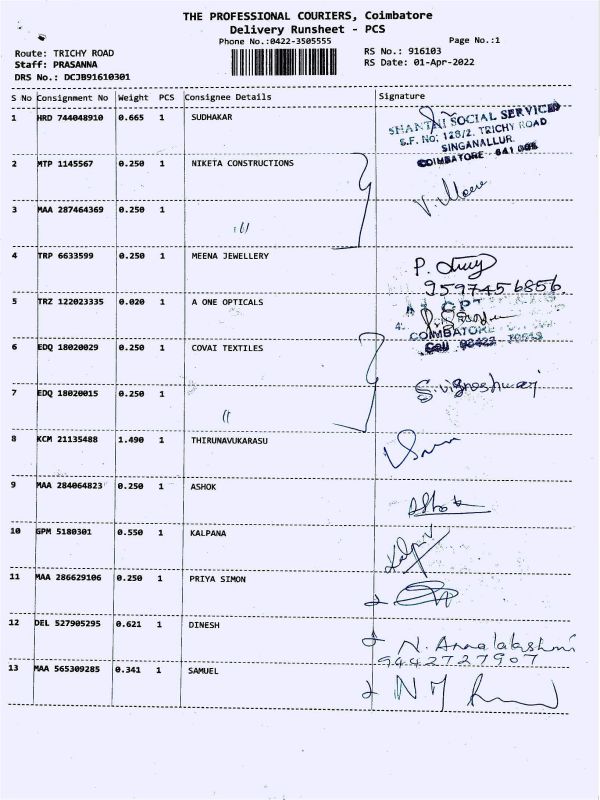 THE PROFESSIONAL COURIERS, Coimbatore
Delivery Runsheet - PCS
Phone No.:0422-3505555
Page No.:1
Route: TRICHY ROAD
RS No.: 916103
Staff: PRASANNA
RS Date: 01-Apr-2022
DRS No.: DCJB91610301
S No Consignment No Weight PCS Consignee Details Signature
1 HRD 744048910 0.665 1 SUDHAKAR
SHANTHI SOCIAL SERVICES
S.F. NO: 128/2, TRICHY ROAD
SINGANALLUR,
COIMBATORE - 641 005
2 MTP 1145567 0.250 1 NIKETA CONSTRUCTIONS
3 MAA 287464369 0.250 1
4 TRP 6633599 0.250 1 MEENA JEWELLERY
P.
9597456856
5 TRZ 122023335 0.020 1 A ONE OPTICALS
COIMBATORE
Cell
6 EDQ 18020029 0.250 1 COVAI TEXTILES
S. Vignoshwari
7 EDQ 18020015 0.250 1
8 KCM 21135488 1.490 1 THIRUNAVUKARASU
9 MAA 284064823 0.250 1 ASHOK
Ashok
10 GPM 5180301 0.550 1 KALPANA
11 MAA 286629106 0.250 1 PRIYA SIMON
12 DEL 527905295 0.621 1 DINESH
N. Annalakshmi
9442727907
13 MAA 565309285 0.341 1 SAMUEL